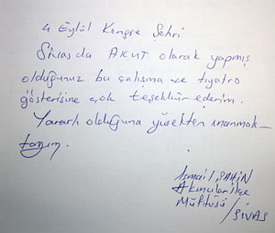 4 Eylül Kongre Şehri
Sivas da AKUT olarak yapmış
olduğunuz bu çalışma ve tiyatro
gösterisine çok teşekkür ederim.
Yararlı olduğuna yürekten inanmak-
tayım.
İsmail ŞAHİN
Akıncılar ilçe
Müftüsü
/SİVAS